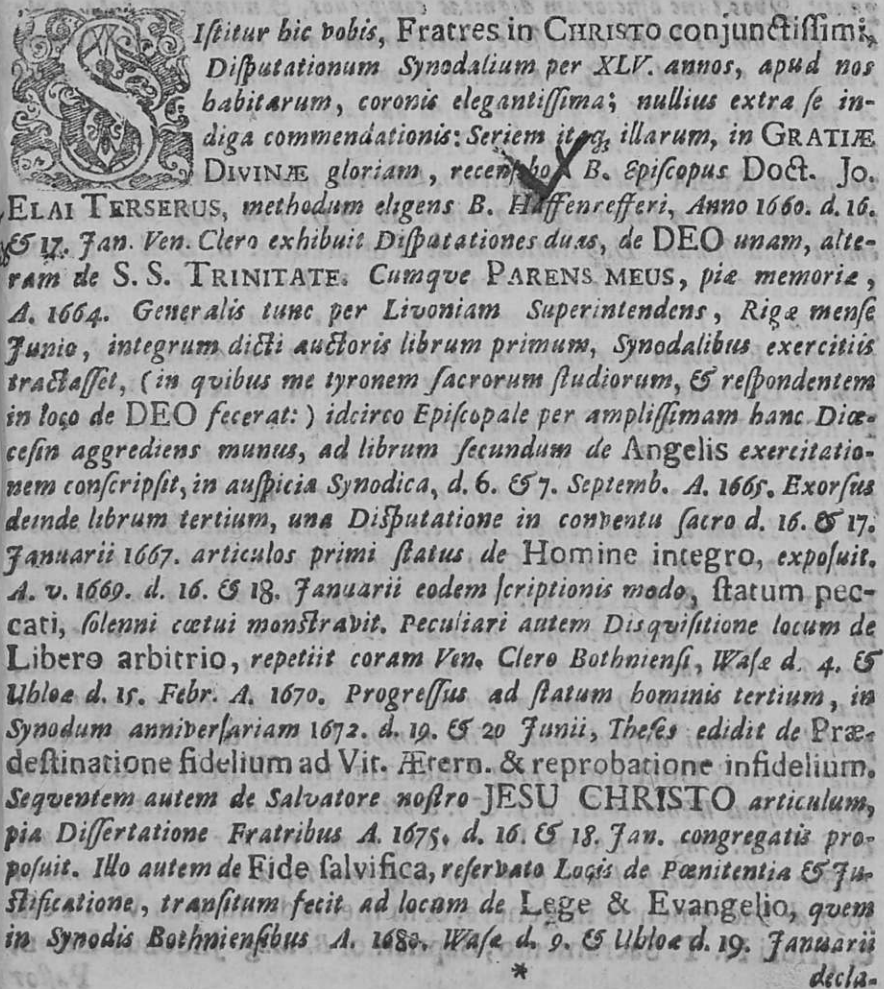 SIſtitur hic vobis, Fratres in CHRISTO conjunctiſſimi,
Diſputationum Synodalium per XLV. annos, apud nos
habitarum, coronis elegantiſſima; nullius extra ſe in-
diga commendationis: Seriem itaq; illarum, in GRATIÆ
DIVINÆ gloriam, recenſebo. B. Epiſcopus Doct. Jo.
ELAI TERSERUS, methodum eligens B. Haffenrefferi, Anno 1660. d. 16.
& 17. Jan. Ven. Clero exhibuit Diſputationes duas, de DEO unam, alte-
ram de S. S. TRINITATE. Cumqve PARENS MEUS, piæ memoriæ,
A. 1664. Generalis tunc per Livoniam Superintendens, Rigæ menſe
Junio, integrum dicti auctoris librum primum, Synodalibus exercitiis
tractaſſet, (in qvibus me tyronem ſacrorum ſtudiorum, & reſpondentem
in loco de DEO fecerat:) idcirco Epiſcopale per ampliſſimam hanc Diœ-
ceſin aggrediens munus, ad librum ſecundum de Angelis exercitatio-
nem conſcripſit, in auſpicia Synodica, d. 6. & 7. Septemb. A. 1665. Exorſus
deinde librum tertium, una Diſputatione in conventu ſacro d. 16. & 17.
Januarii 1667. articulos primi ſtatus de Homine integro, expoſuit.
A. v. 1669. d. 16. & 18. Januarii eodem ſcriptionis modo, ſtatum pec-
cati, ſolenni cœtui monſtravit. Peculiari autem Disquiſitione locum de
Libero arbitrio, repetiit coram Ven. Clero Bothnienſi, Waſæ d. 4. &
Uhloæ d. 15. Febr. A. 1670. Progreſſus ad ſtatum hominis tertium, in
Synodum anniverſariam 1672. d. 19. & 20 Junii, Theſes edidit de Præ-
deſtinatione fidelium ad Vit. Ætern. & reprobatione infidelium.
Seqventem autem de Salvatore noſtro JESU CHRISTO articulum,
pia Diſſertatione Fratribus A. 1675. d. 16. & 18. Jan. congregatis pro-
poſuit. Illo autem de Fide ſalvifica, reſervato Locis de Pœnitentia & Ju-
ſtificatione, tranſitum fecit ad locum de Lege & Evangelio, qvem
in Synodis Bothnienſibus A. 1680. Waſæ d. 9. & Uhloæ d. 19. Januarii
* decla-